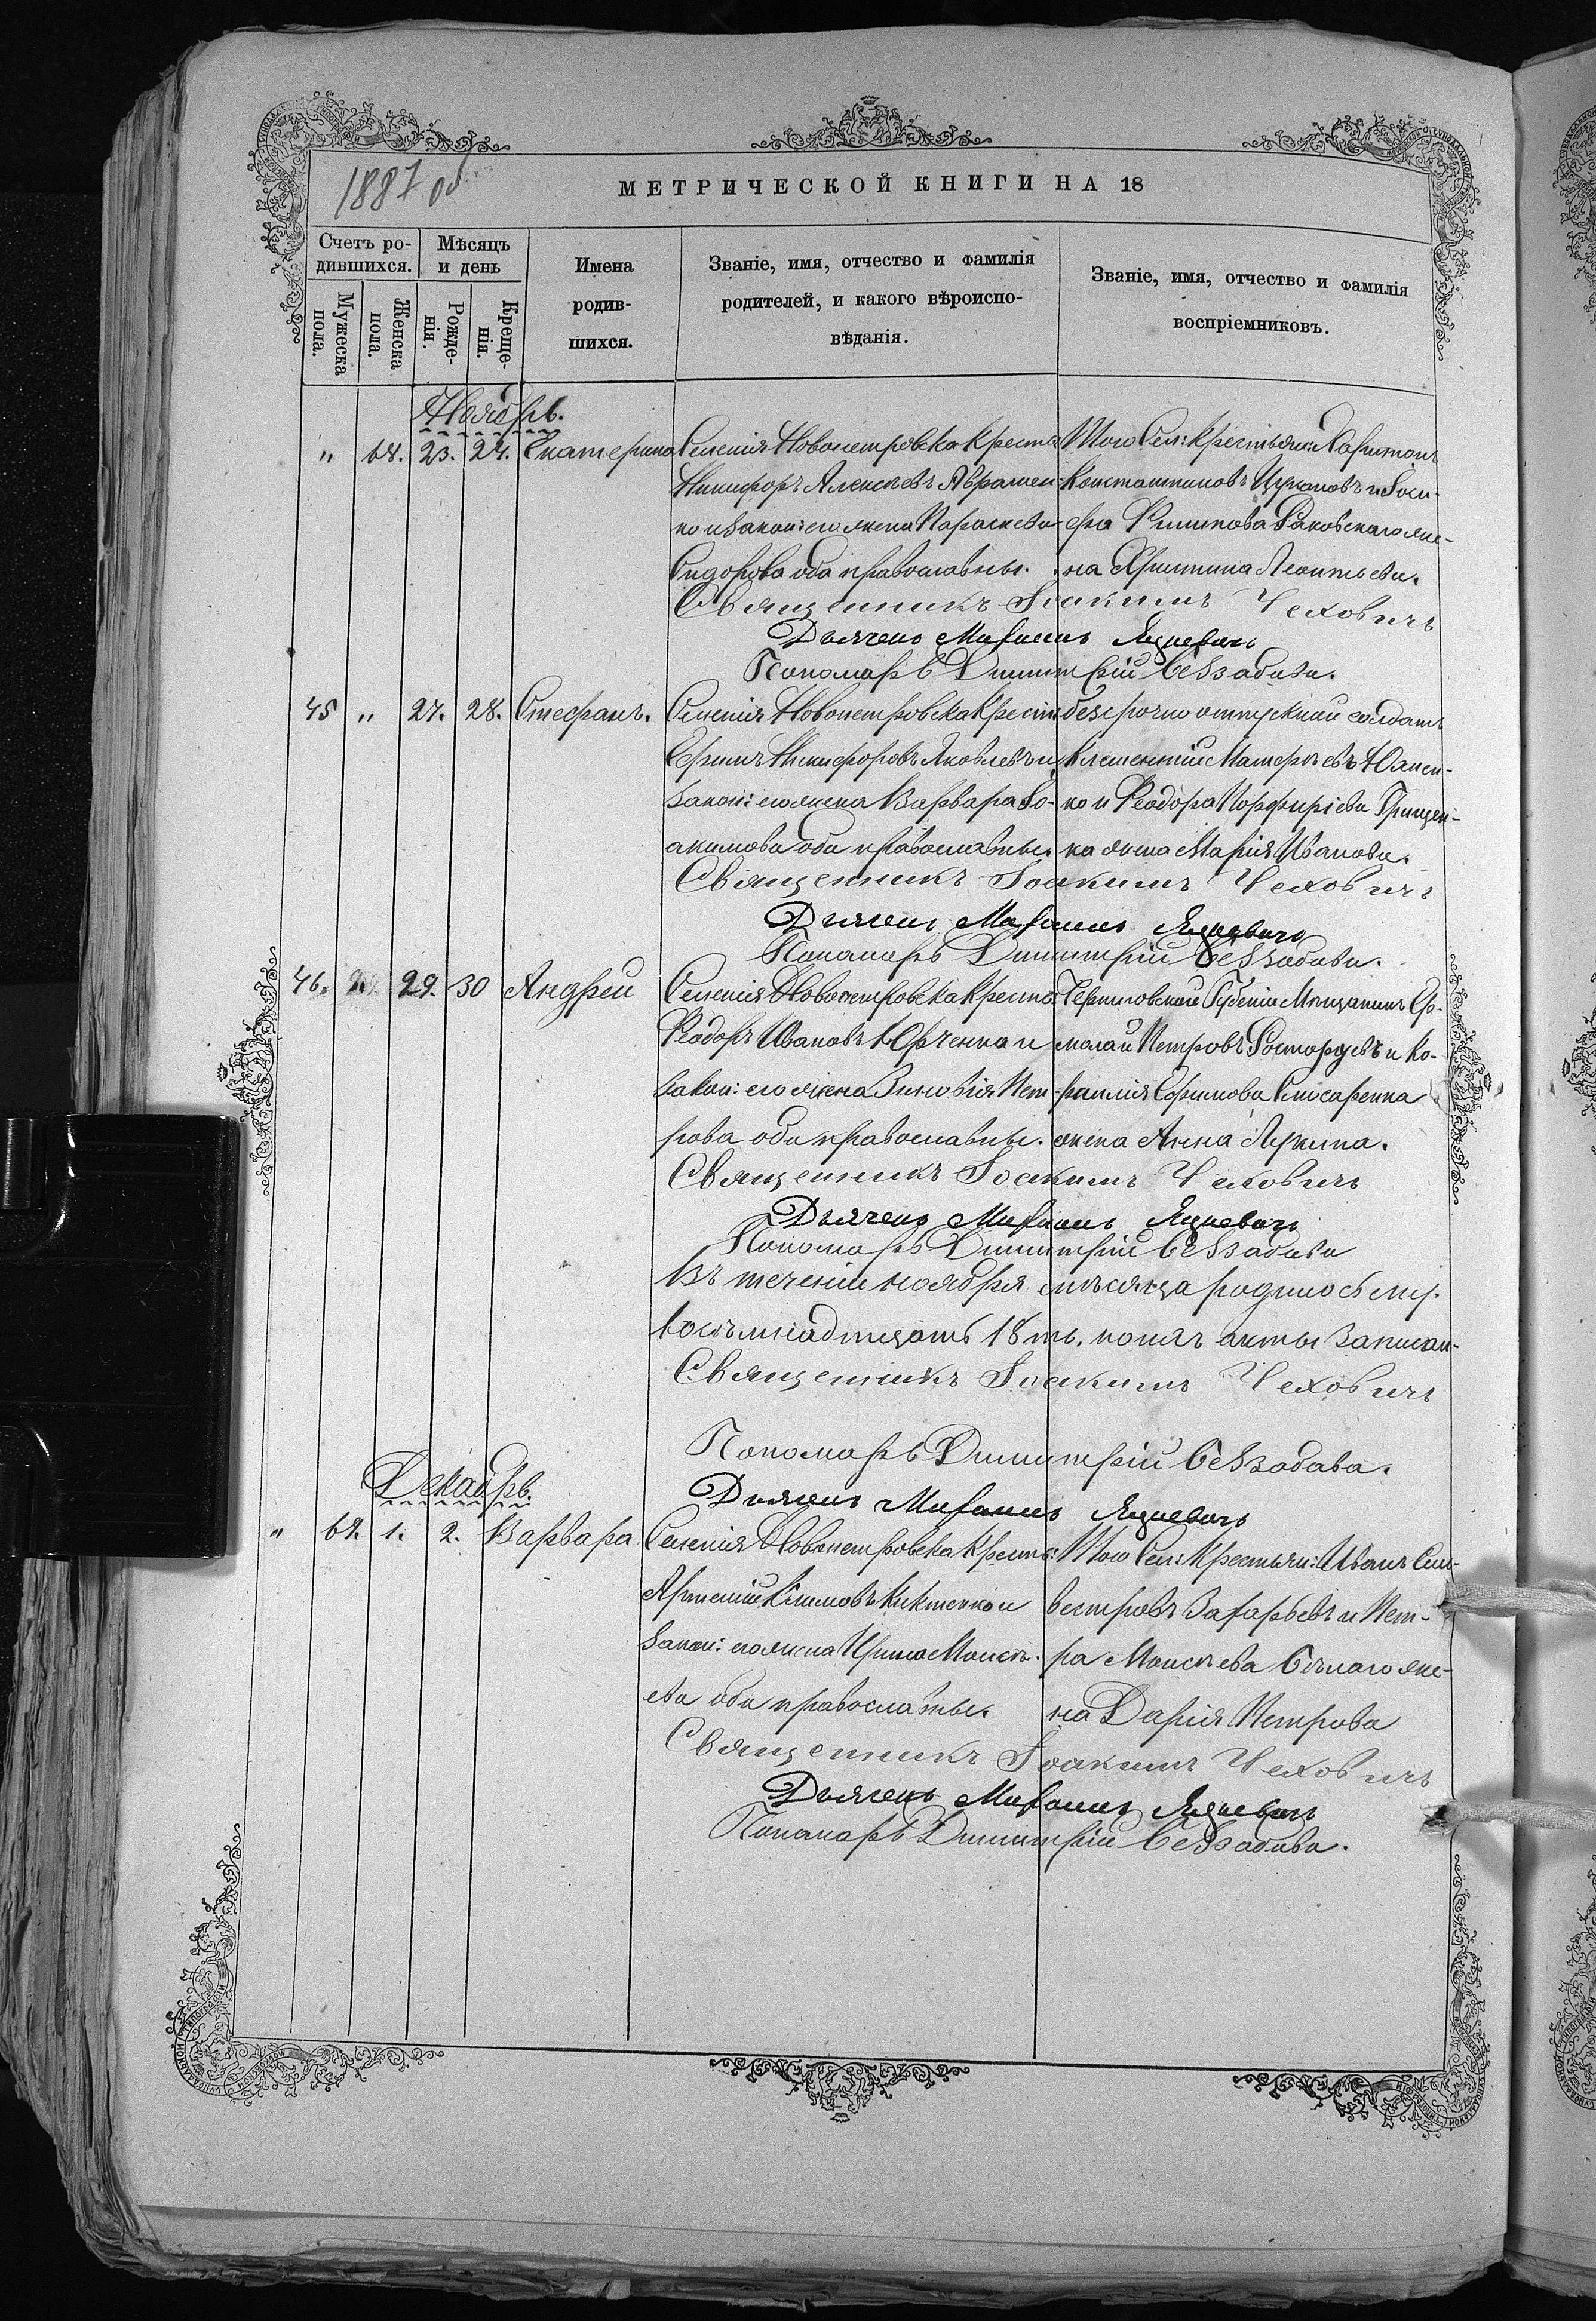 1887 го
МЕТРИЧЕСКОЙ КНИГИ НА 18
Счетъ ро-
дившихся.
Мѣсяцъ
и день
Мужеска
пола.
Женска
пола.
Рожде-
нія.
Креще-
нія.
Имена
родив-
шихся.
Званіе, имя, отчество и фамилія
родителей, и какого вѣроиспо-
вѣданія.
Званіе, имя, отчество и фамилія
воспріемниковъ.
Ноябрь.
" 68. 23. 24. Екатерина
Селенія Новопетровска Крестья
Никифоръ Алексѣевъ Аврамен-
ко и закон: его жена Параскева
Сидорова оба православные.
Того Сел: Крестьяни: Харитонъ
Константиновъ Цукановъ и Іоси-
фа Филипова Раковскаго же-
на Христина Леонтьева.
Священникъ Іоакимъ Чеховичъ
Дьячекъ Михаилъ Яцкевичъ
Пономарь Димитрій Беззабава.
45 " 27. 28. Стефанъ.
Селенія Новопетровска Крестья
Ефимъ Никифоровъ Яковлевъ и
закон: его жена Варвара Іо-
акимова оба православные.
безсрочно отпускной солдатъ
Климентій Матфѣевъ Юхмен-
ко и Феодора Порфиріева Грицен-
ка жена Марія Иванова.
Священникъ Іоакимъ Чеховичъ
Дьячекъ Михаилъ Яцкевичъ
Пономарь Димитрій Беззабава.
46. 29. 30 Андрей
Селенія Новопетровска Крестья:
Феодоръ Ивановъ Юрченко и
закон: его жена Зиновія Пет-
рова оба православные.
Черниговской Губерніи Мѣщанинъ Ер-
молай Петровъ Расторгуевъ и Ко-
зака Ефимова Слюсаренка
жена Анна Лукина.
Священникъ Іоакимъ Чеховичъ
Дьячекъ Михаилъ Яцкевичъ
Пономарь Димитрій Беззабава
Въ теченіи ноября мѣсяца родилось
восемнадцать 18ть. акты записан-
Священникъ Іоакимъ Чеховичъ
Пономарь Димитрій Беззабава.
Дьячекъ Михаилъ Яцкевичъ
Декабрь.
" 69. 1. 2. Варвара
Селенія Новопетровска Крестья:
Артемій Климовъ Киктенко и
закон: его жена Ирина Моисѣ-
ева оба православные.
Того Сел: Крестьяни: Иванъ Сил-
вестровъ Захарьевъ и Пет-
ра Моисѣева Бѣлаго же-
на Дарія Петрова
Священникъ Іоакимъ Чеховичъ
Дьячекъ Михаилъ Яцкевичъ
Пономарь Димитрій Беззабава.